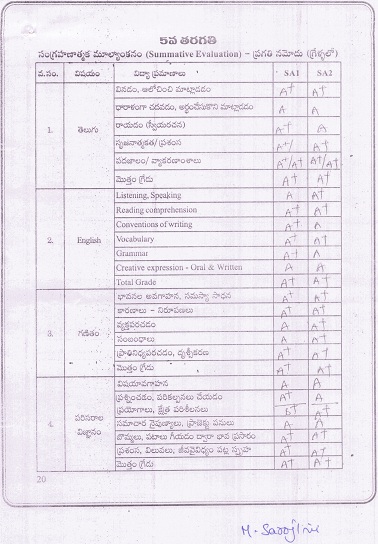 5వ తరగతి
సంగ్రహణాత్మక మూల్యాంకనం (Summative Evaluation) – ప్రగతి నమోదు (గ్రేడ్లలో)
వ.సం. విషయం విద్యా ప్రమాణాలు SA1 SA2
వినడం, ఆలోచించి మాట్లాడడం A+ A+
ధారాళంగా చదవడం, అర్థంచేసుకొని మాట్లాడడం A A
1. తెలుగు రాయడం (స్వీయరచన) A+ A
సృజనాత్మకత/ ప్రశంస A+/ A+
పదజాలం/ వ్యాకరణాంశాలు A+/A+ A+/A+
మొత్తం గ్రేడు A+ A+
Listening, Speaking A A+
Reading comprehension A+ A+
Conventions of writing A+ A
2. English Vocabulary A+ A+
Grammar A+ A
Creative expression - Oral & Written A A
Total Grade A+ A+
భావనల అవగాహన, సమస్యా సాధన A+ A+
కారణాలు – నిరూపణలు A+ A+
3. గణితం వ్యక్తపరచడం A A+
సంబంధాలు A A+
ప్రాతినిధ్యపరచడం, దృశ్యీకరణ A+ A+
మొత్తం గ్రేడు A+ A+
విషయావగాహన A A
ప్రశ్నించడం, పరికల్పనలు చేయడం A+ A
ప్రయోగాలు, క్షేత్ర పరిశీలనలు A+
4. పరిసరాల విజ్ఞానం సమాచార నైపుణ్యాలు, ప్రాజెక్టు పనులు A A
బొమ్మలు, పటాలు గీయడం ద్వారా భావ ప్రసారం A+ A+
ప్రశంస, విలువలు, జీవవైవిధ్యం పట్ల స్పృహ A+ A+
మొత్తం గ్రేడు A+ A+
20
M. Sarojini